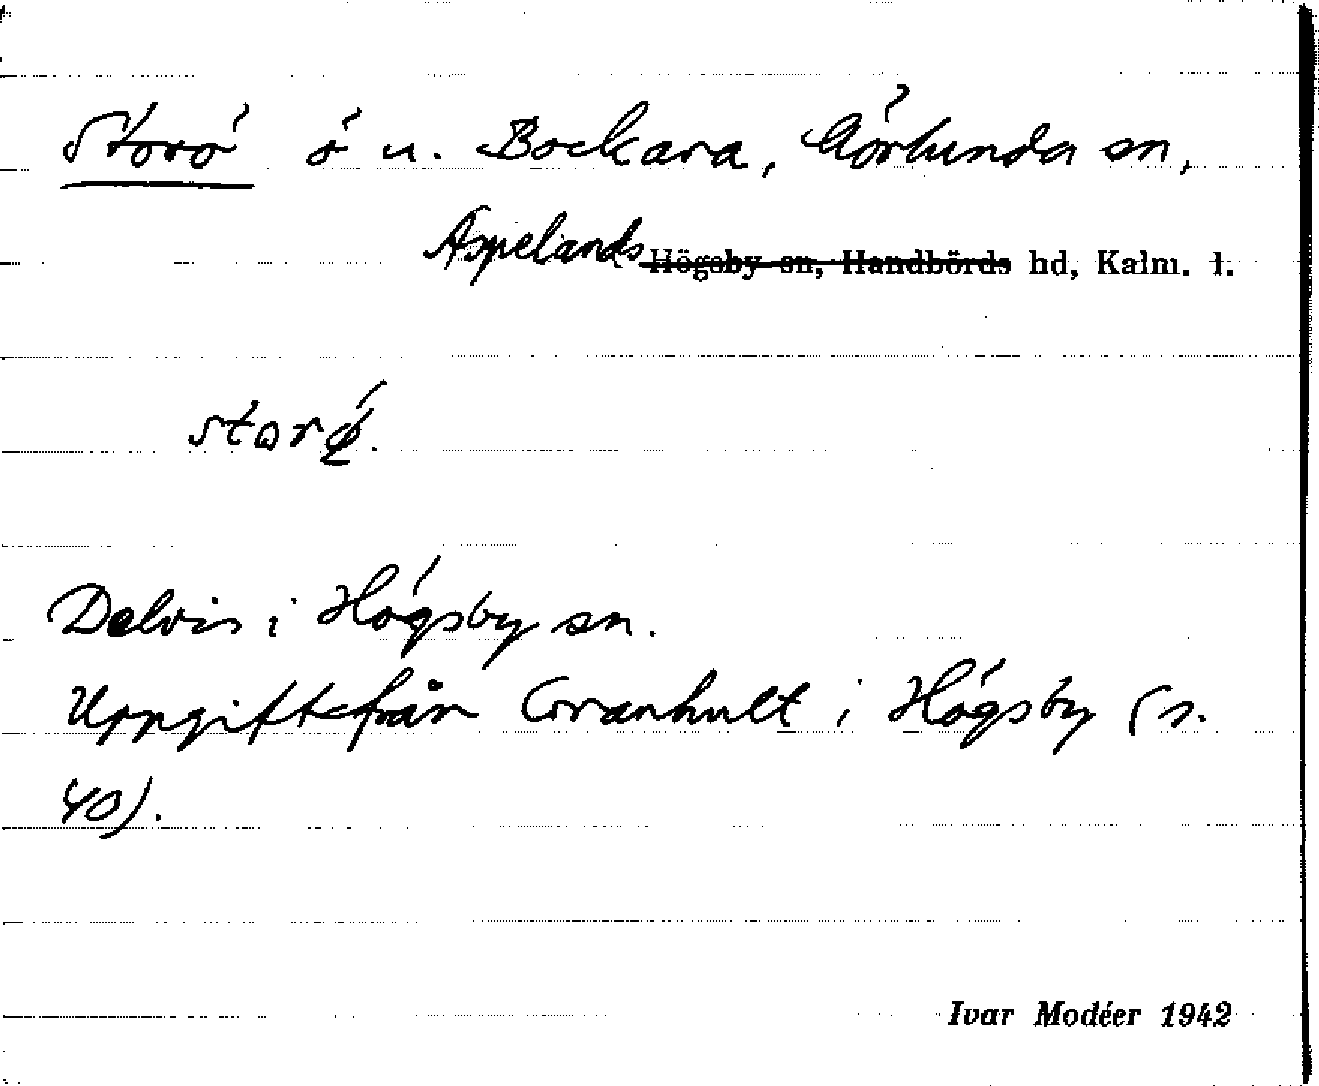 Storö ö u. Bockara, Görhunda sn,
Aspelands ~~Högsby sn, Handbörds~~ hd, Kalm. l.
Delvis i Högsby sn.
Uppgift från Granhult i Högsby (s.
40).
Ivar Modéer 1942